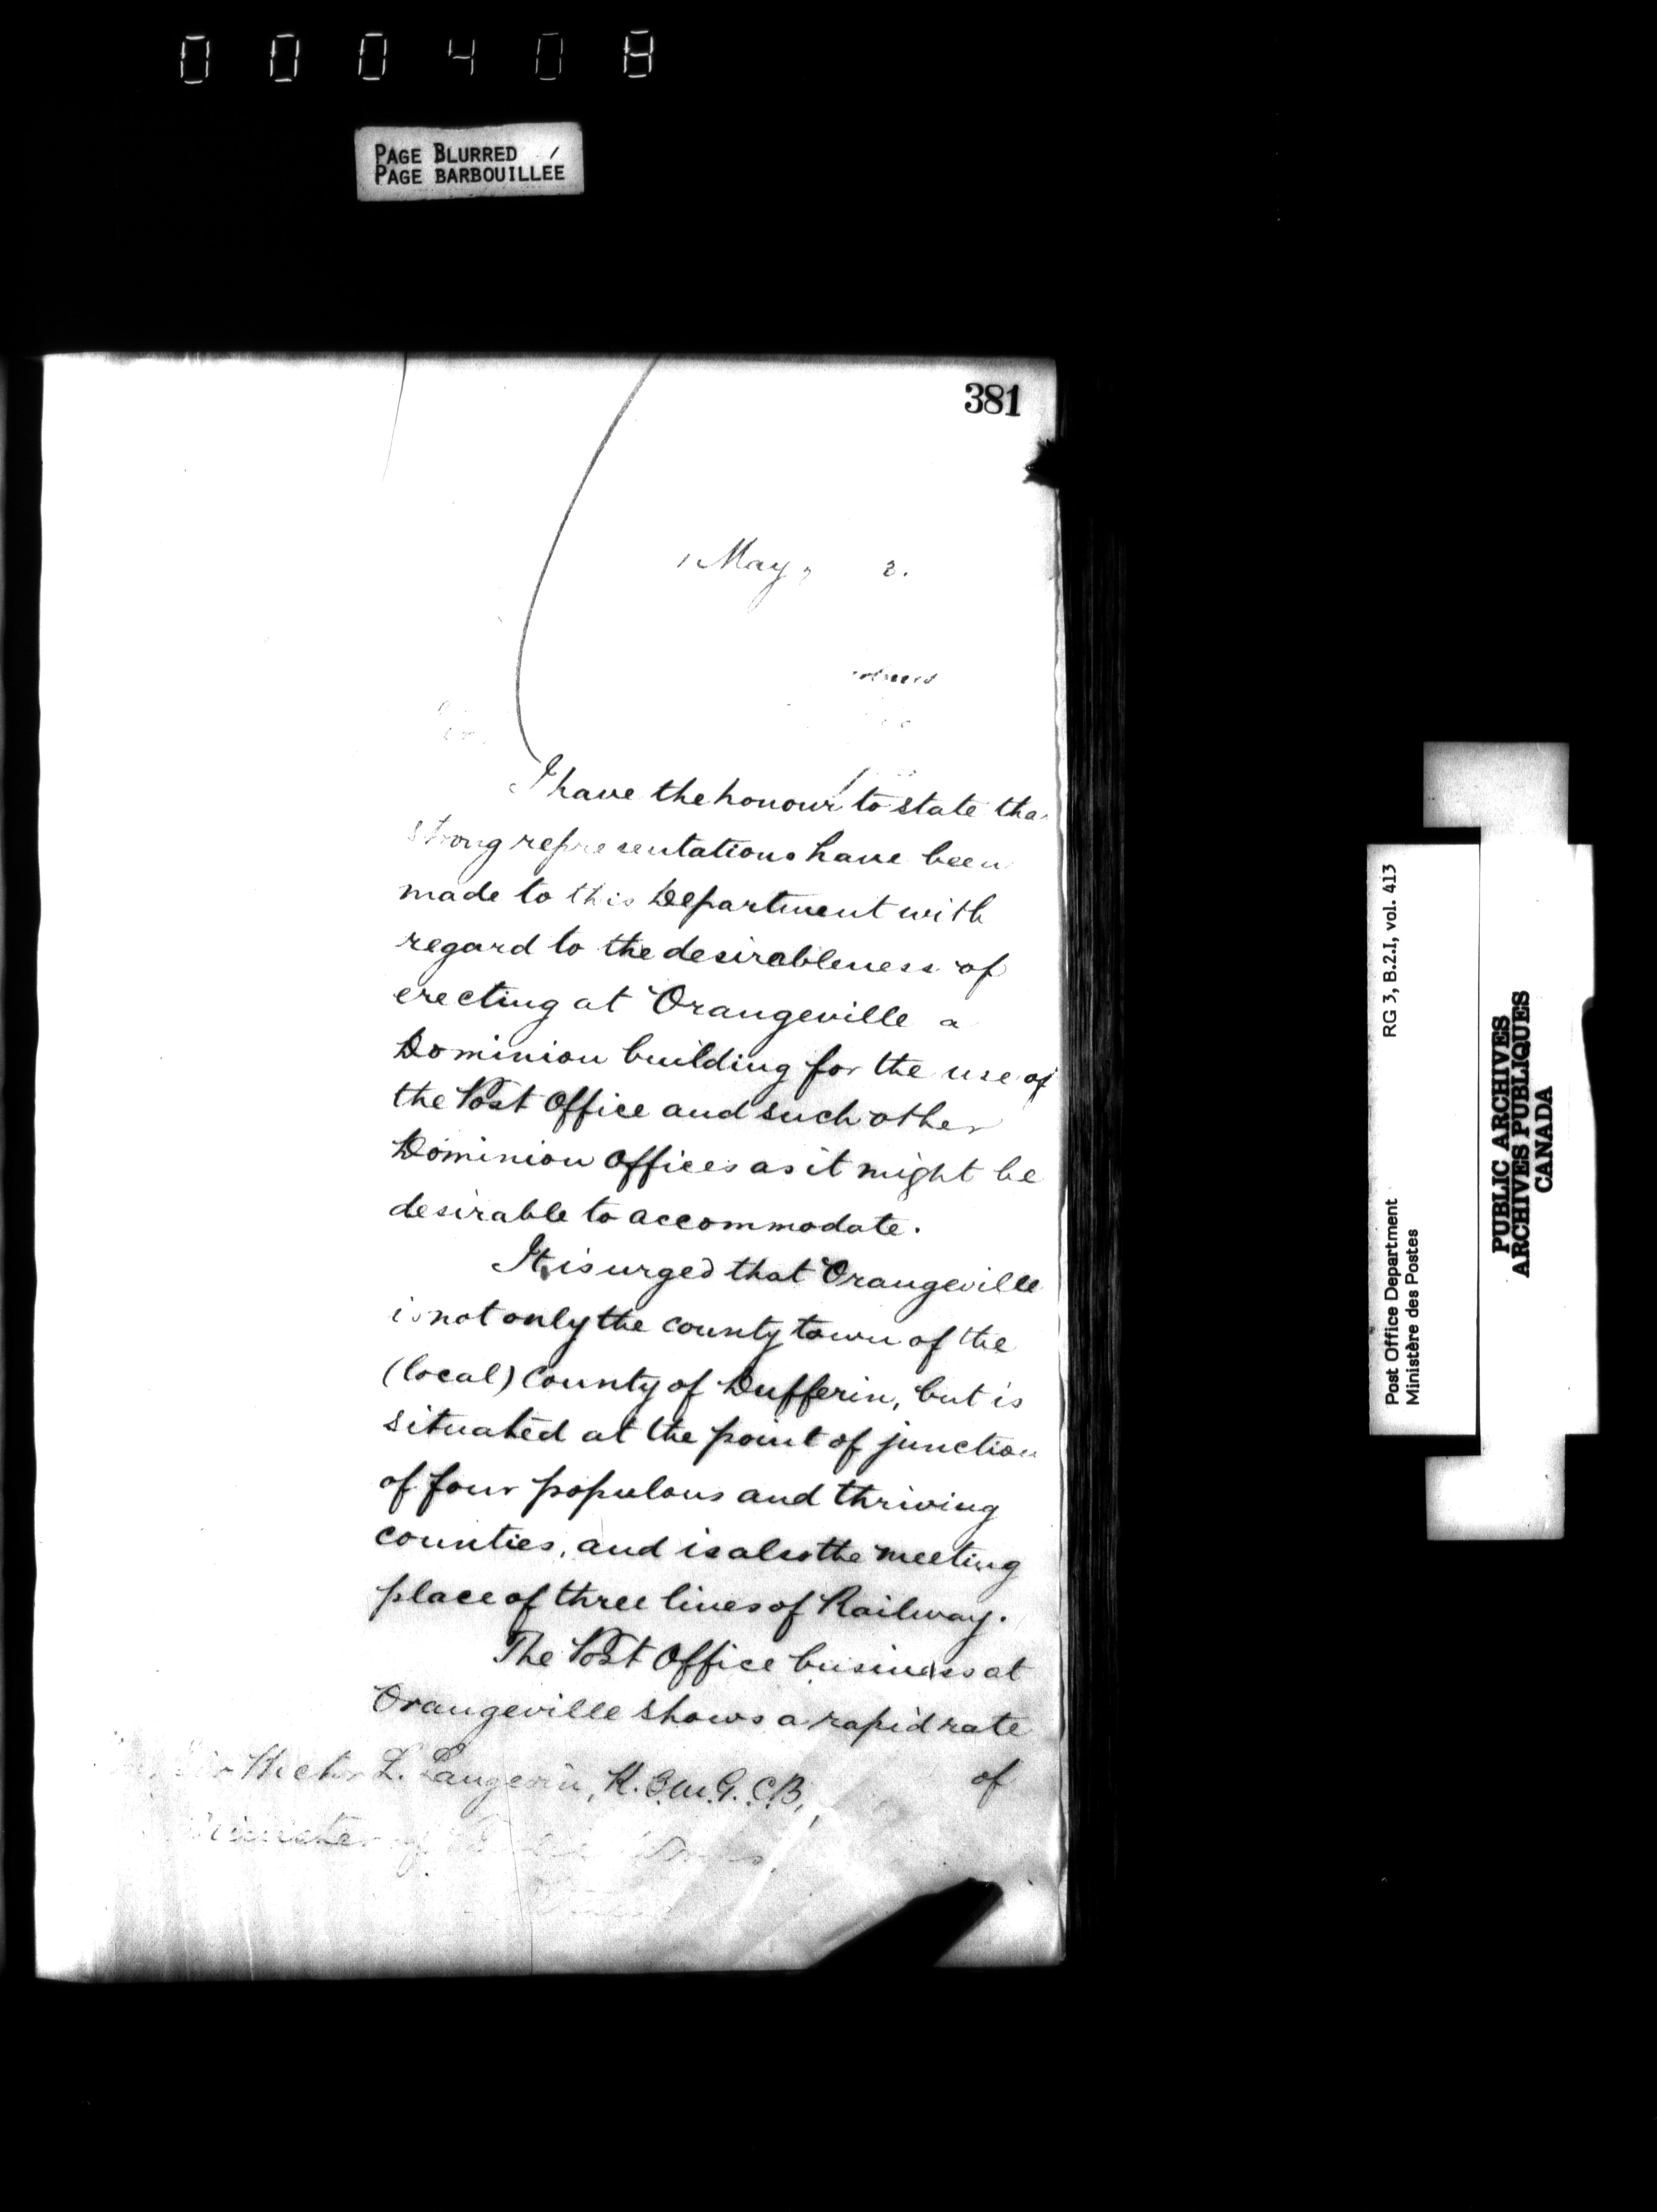 000408
PAGE BLURRED
PAGE BARBOUILLÉE
381
1 May, 2.
Sir,
I have the honour to state tha
strong representations have been
made to this Department with
regard to the desirableness of
erecting at Orangeville a
Dominion building for the use of
the Post Office and such other
Dominion Offices as it might be
desirable to accommodate.
It is urged that Orangeville
is not only the county town of the
(local) County of Dufferin, but is
situated at the point of junction
of four populous and thriving
counties, and is also the meeting
place of three lines of Railway.
The Post Office business at
Orangeville shows a rapid rate
of
Sir Hector L. Langevin, K.C.M.G. C.B,
Minister of Public Works,
RG 3, B.2.I, vol. 413
Post Office Department
Ministère des Postes
PUBLIC ARCHIVES
ARCHIVES PUBLIQUES
CANADA